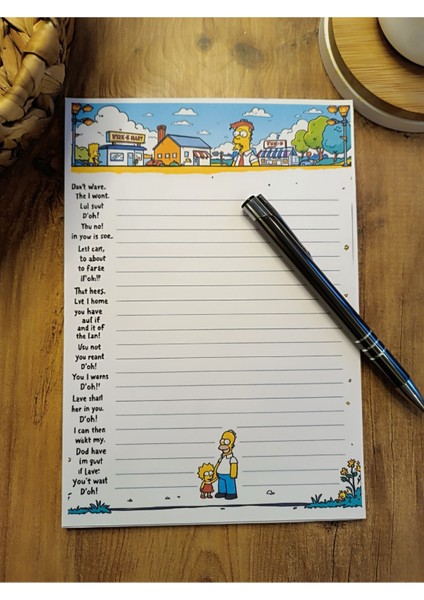 Don't wave.
The I wont.
Lul suut
D'oh!
Thu no!
in you is soe.
Letl can,
to about
to farse
if'oh!!
Thut hees.
Lve I home
you have
auf if
and it of
the Lan!
Usu not
you reant
D'oh!
You I warns
D'oh!!
Lave shatl
her in you.
D'oh!
I can then
wakt my.
Dod have
im guut
if Lave!
you't wast
D'oh!